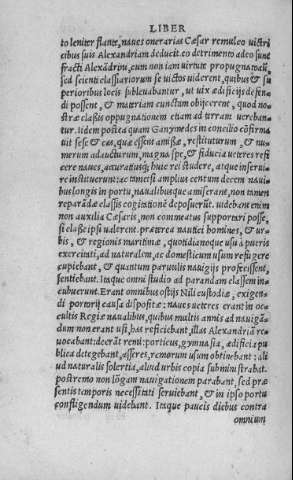 LIBER
to leniter flante, naues onerarias Cæsar remulco uictri
cibus suis Alexandriam deducit. eo detrimento adeo sunt
fracti Alexādrini, cum non iam uirtute propugnatorū,
sed scientia classiariorum se uictos uiderent, quibus & su
perioribus locis subleuabantur, ut uix ædificijs defen
di possent, & materiam cunctam obijcerent, quod no-
stræ classis oppugnationem etiam ad terram uereban-
tur. Iidem postea quam Ganymedes in concilio cōfirma
uit sese & eas, quæ essent amissæ, restituturum, & nu-
merum adaucturum, magna spe, & fiducia ueteres refi
cere naues, accuratiusq; huic rei studere, atque inseruire
instituerunt: ac tametsi amplius centum decem naui
bus longis in portu, naualibusque amiserant, non tamen
reparādæ classis cogitationē deposuerūt. uidebant enim
non auxilia Cæsaris, non commeatus supportari posse,
si classe ipsi ualerent. præterea nautici homines, & ur-
bis, & regionis maritimæ, quotidianoque usu à pueris
exercitati, ad naturalem, ac domesticum usum refugere
cupiebant, & quantum paruulis nauigijs profecissent,
sentiebant. Itaque omni studio ad parandam classem in-
cubuerunt. Erant omnibus ostijs Nili custodiæ, exigen-
di portorij causa dispositæ: naues ueteres erant in oc-
cultis Regiæ naualibus, quibus multis annis ad nauigā-
dum non erant usi, has reficiebant, illas Alexandriā re
uocabant: deerāt remi: porticus, gymnasia, ædificia pu
blica detegebant, asseres, remorum usum obtinebant: ali
ud naturalis solertia, aliud urbis copia subministrabat.
postremo non lōgam nauigationem parabant, sed præ
sentis temporis necessitati seruiebant, & in ipso portu
confligendum uidebant. Itaque paucis diebus contra
omnium